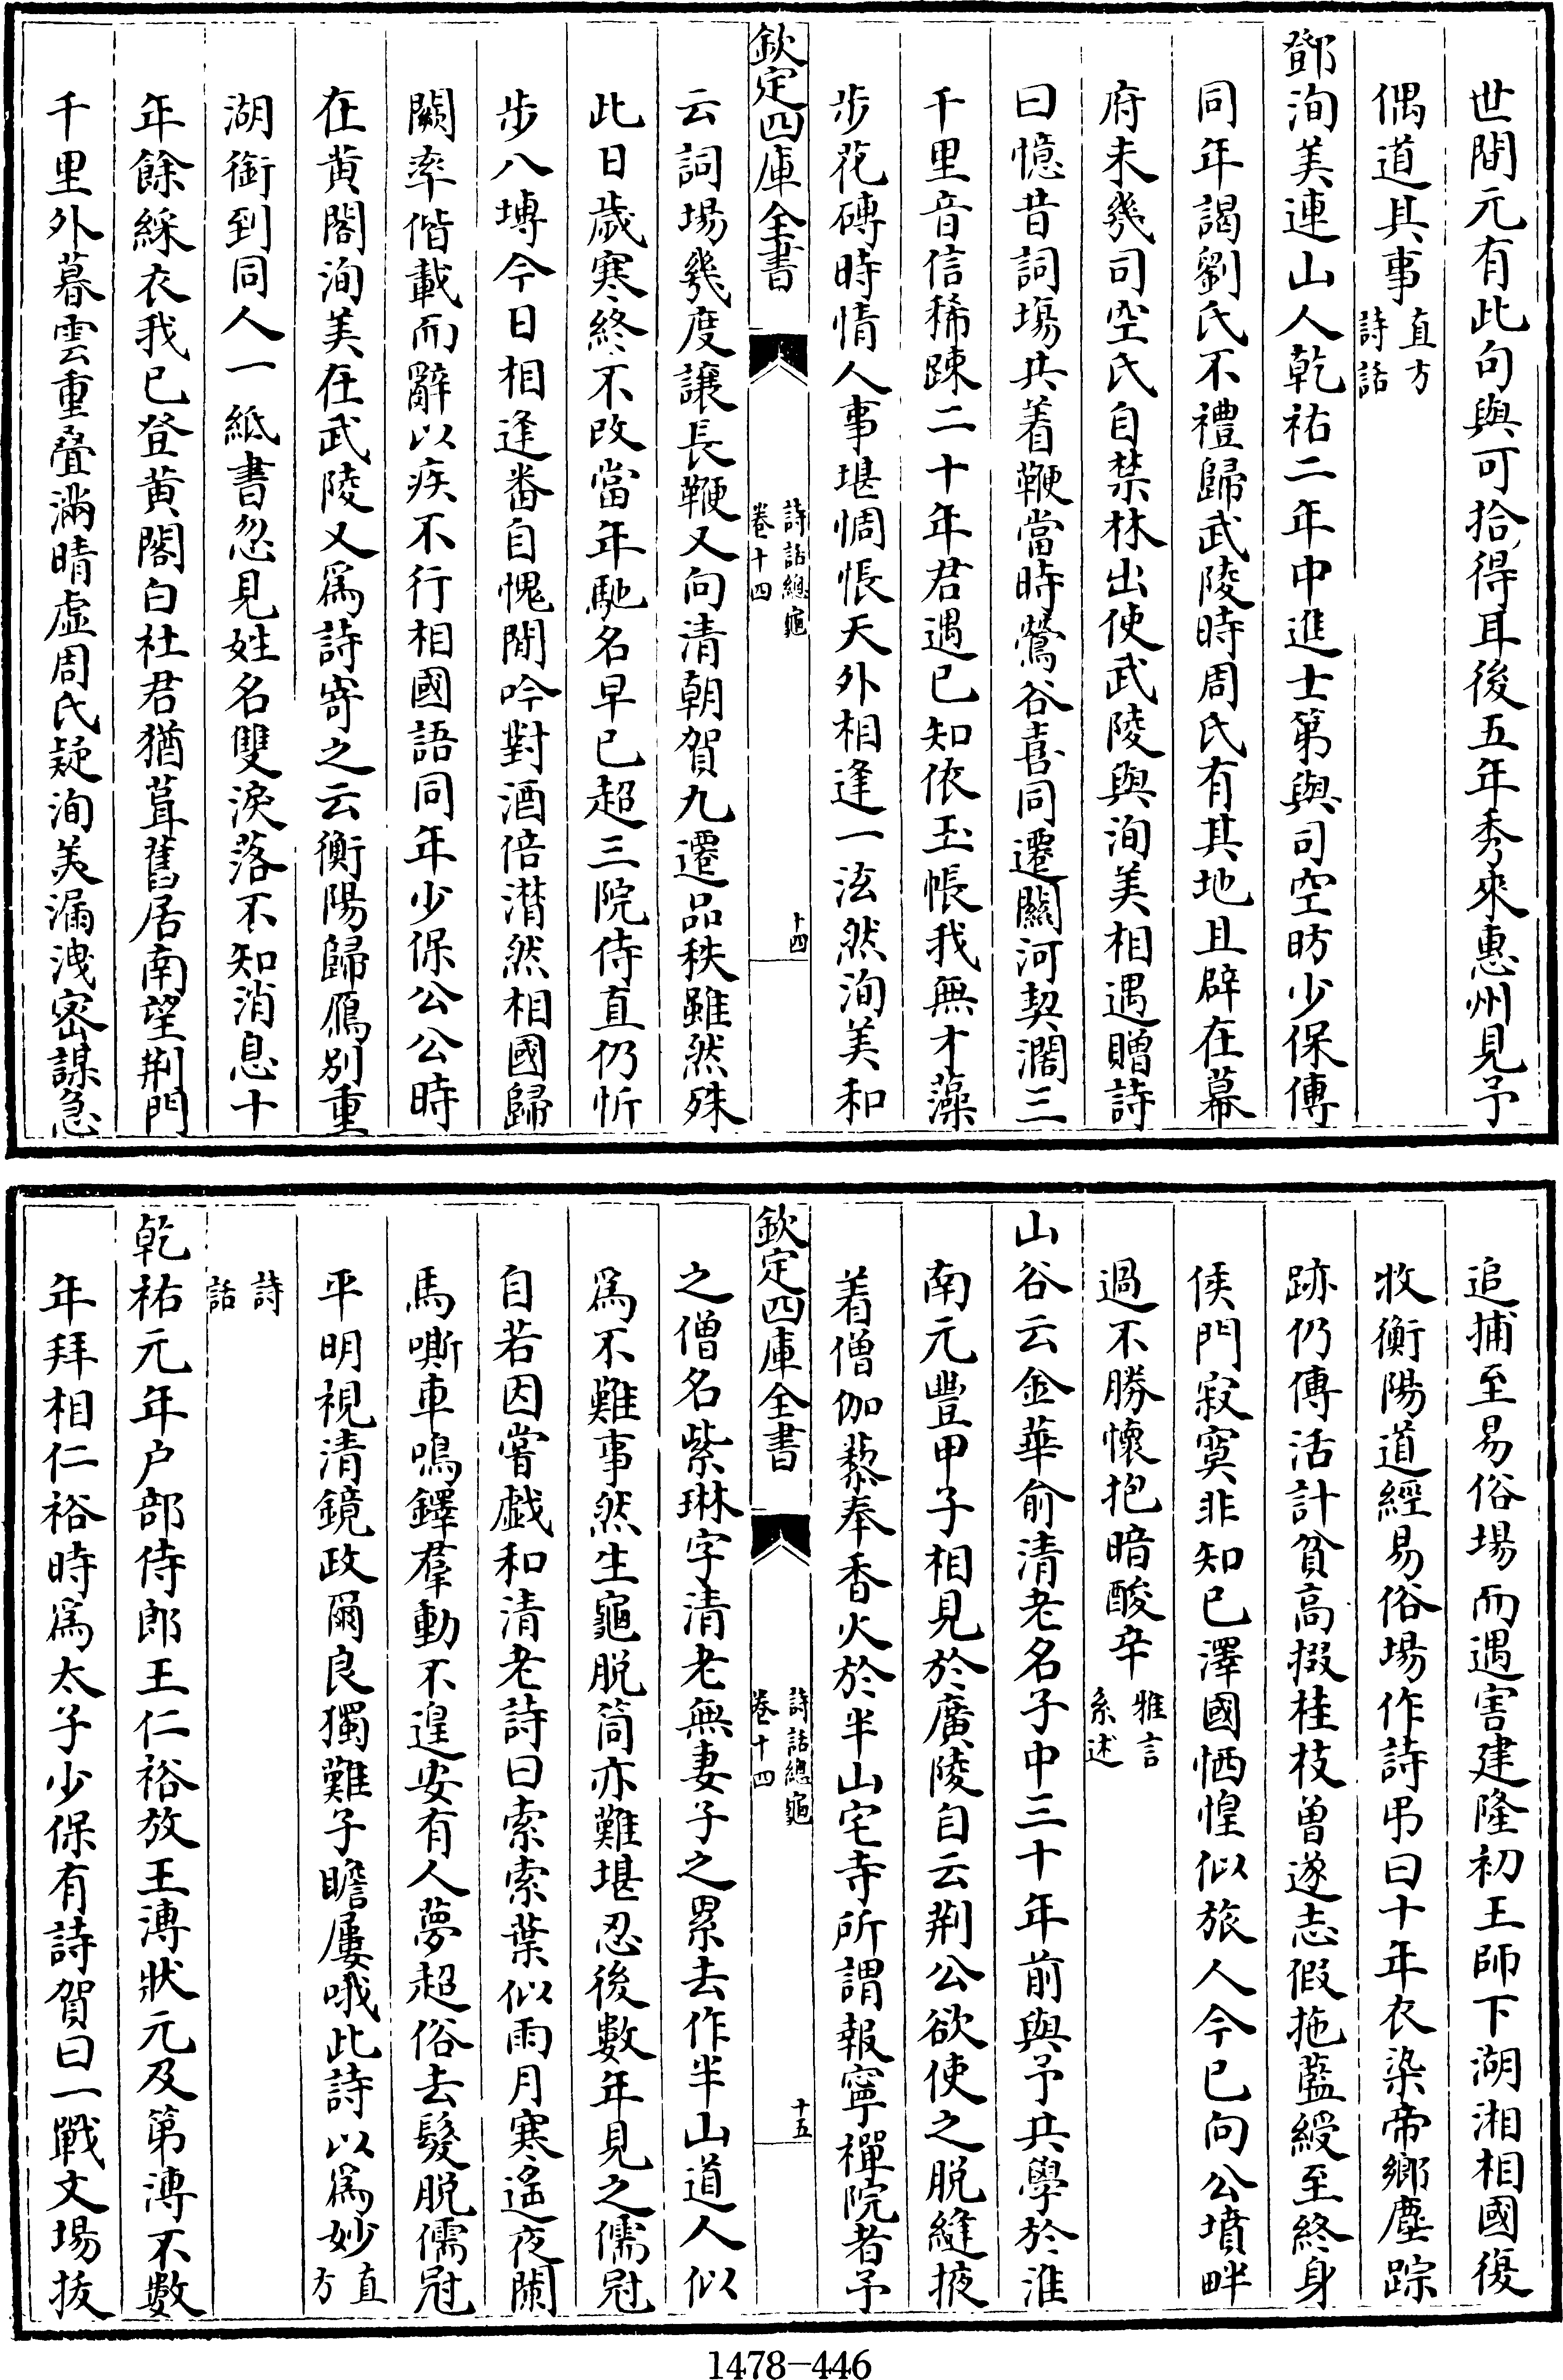 世間元有此句與可拾得耳後五年秀來惠州見予
偶道其事直方詩話
鄧洵美連山人乾祐二年中進士第與司空昉少保溥
同年謁劉氏不禮歸武陵時周氏有其地且辟在幕
府未幾司空氏自禁林出使武陵與洵美相遇贈詩
曰憶昔詞場共着鞭當時鶯谷喜同遷關河契濶三
千里音信稀踈二十年君遇已知依玉帳我無才藻
步花磚時情人事堪惆悵天外相逢一泫然洵美和
欽定四庫全書
詩話總龜
卷十四
十四
云詞場幾度讓長鞭又向清朝賀九遷品秩雖然殊
此日歲寒終不改當年馳名早已超三院侍直仍忻
步八塼今日相逢番自愧閒吟對酒倍潸然相國歸
闕率偕載而辭以疾不行相國語同年少保公公時
在黃閣洵美在武陵又為詩寄之云衡陽歸鴈別重
湖銜到同人一紙書忽見姓名雙淚落不知消息十
年餘綵衣我已登黃閣白社君猶葺舊居南望荆門
千里外暮雲重疊滿晴虛周氏疑洵美漏洩密謀急
追捕至易俗場而遇害建隆初王師下湖湘相國復
牧衡陽道經易俗場作詩弔曰十年衣染帝鄉塵踪
跡仍傳活計貧高掇桂枝曾遂志假拖藍綬至終身
侯門寂寞非知已澤國恓惶似旅人今已向公墳畔
過不勝懷抱暗酸辛雅言系述
山谷云金華俞清老名子中三十年前與予共學於淮
南元豐甲子相見於廣陵自云荆公欲使之脱縫掖
着僧伽黎奉香火於半山宅寺所謂報寧禪院者予
欽定四庫全書
詩話總龜
卷十四
十五
之僧名紫琳字清老無妻子之累去作半山道人似
為不難事然生龜脱筒亦難堪忍後數年見之儒冠
自若因嘗戯和清老詩曰索索葉似雨月寒遙夜闌
馬嘶車鳴鐸羣動不遑安有人夢超俗去髮脱儒冠
平明視清鏡政爾良獨難子瞻屢哦此詩以為妙直方
詩話
乾祐元年户部侍郎王仁裕放王溥狀元及第溥不數
年拜相仁裕時為太子少保有詩賀曰一戰文場拔
1478-446